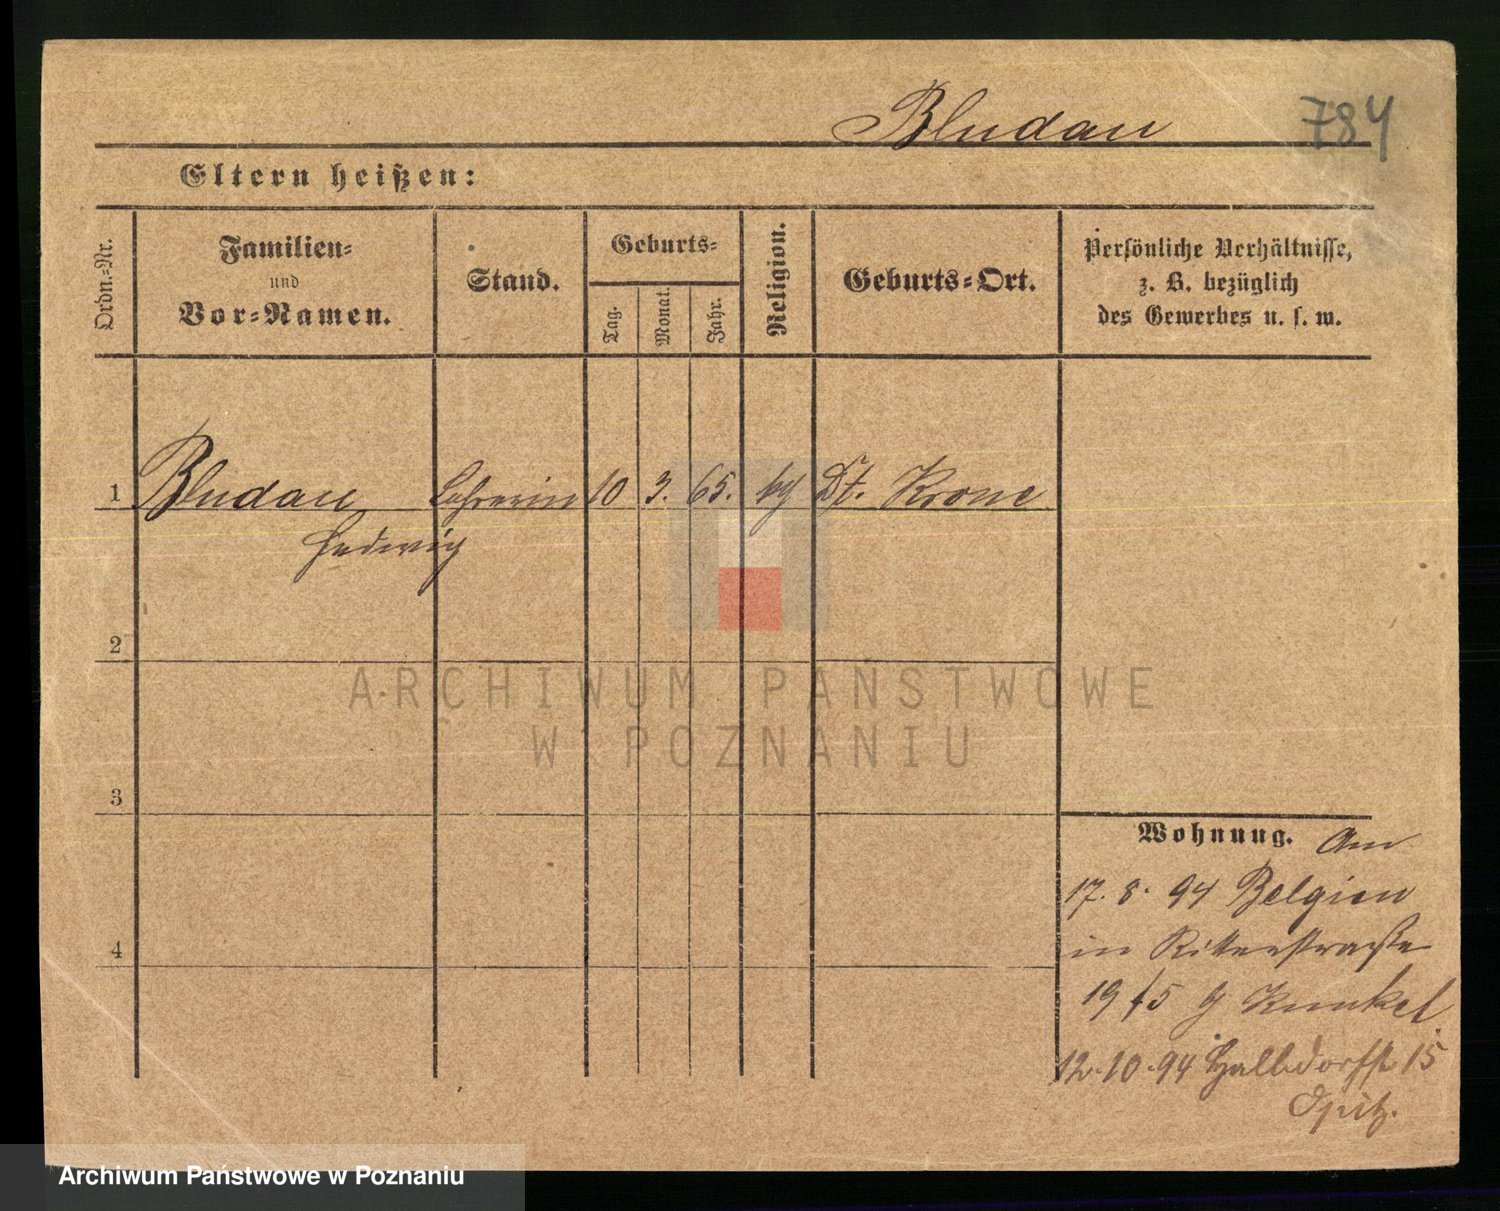 Bludau
784
Eltern heißen:
Ordn.-Nr.
Familien-
und
Vor-Namen.
Stand.
Geburts-
Tag.
Monat.
Jahr.
Religion.
Geburts-Ort.
Persönliche Verhältnisse,
z. B. bezüglich
des Gewerbes u. s. w.
1 Bludau Lehrerin 10 3. 65. Dt. Krone
Hedwig
2
3
4
Wohnung. Am
17. 8. 94 Belgien
in Ritterstraße
19 Kunkel
12.10.94 Halbdorfst 15
Opitz.
ARCHIWUM PAŃSTWOWE
W POZNANIU
Archiwum Państwowe w Poznaniu